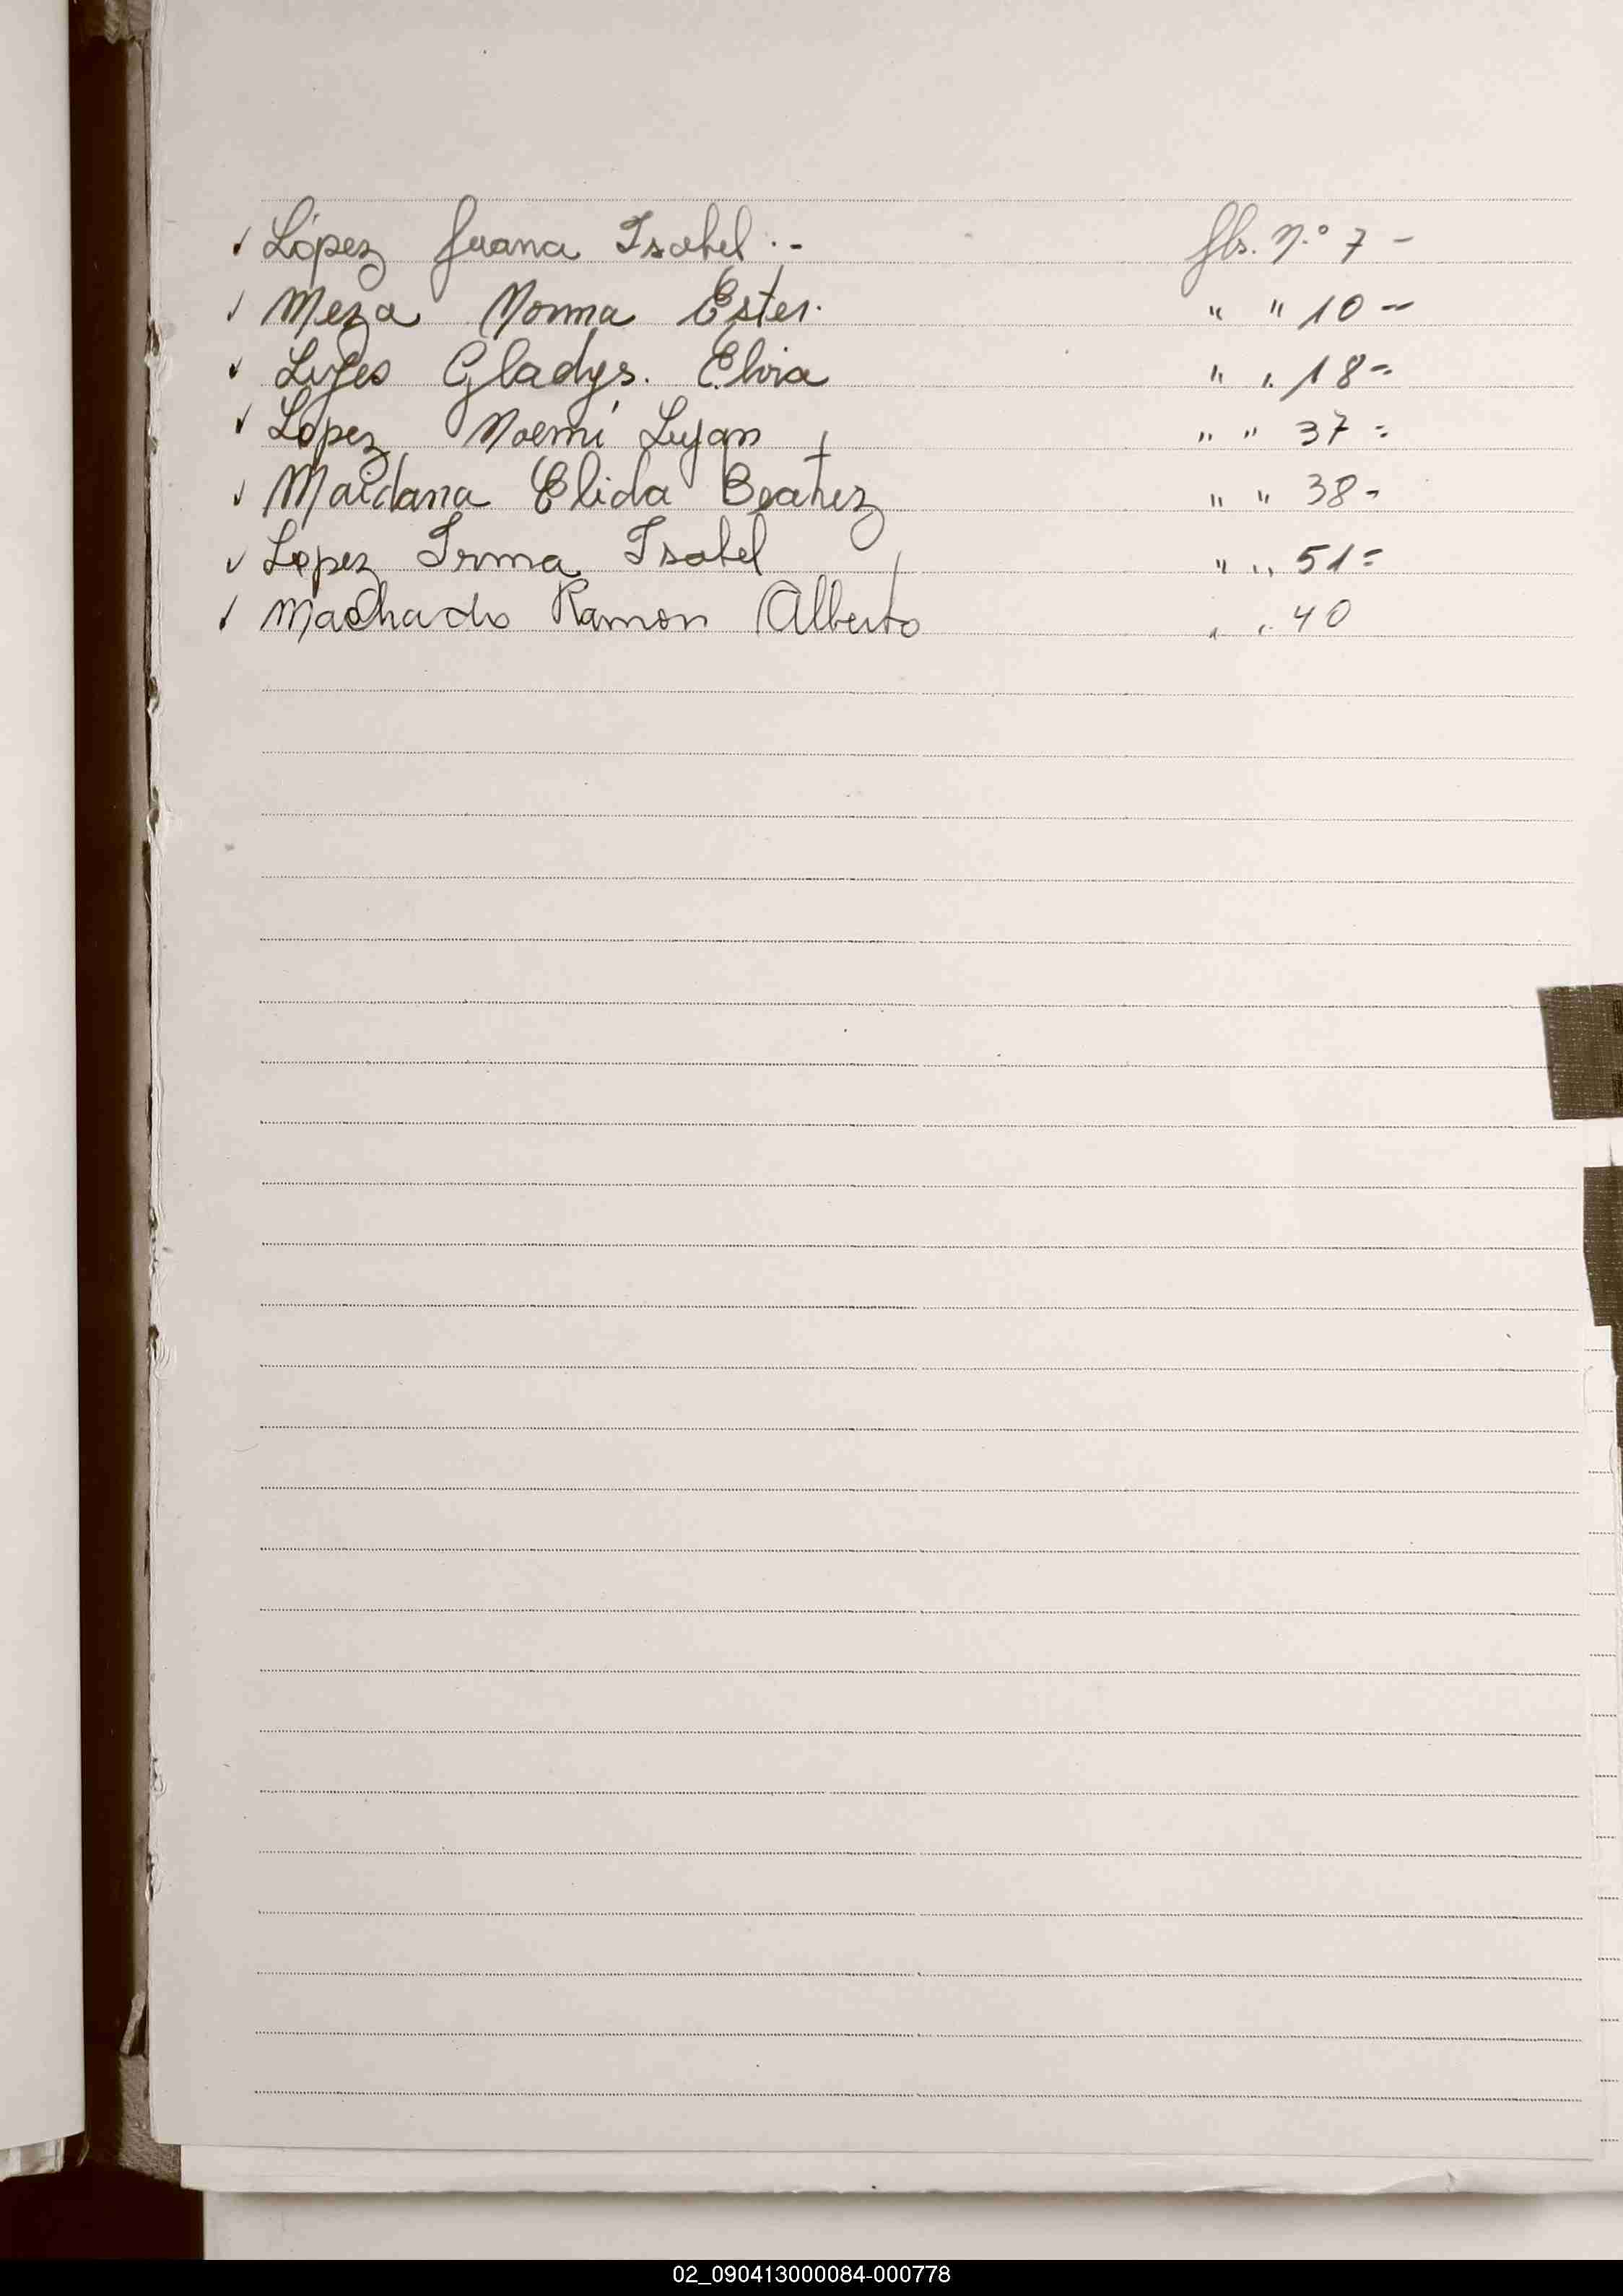 ✓ López Juana Isabel .- fls. N.º 7 -
✓ Meza Norma Ester. " " 10 -
✓ Gladys. Elvia " " 18 =
✓ Lopez Noemí Lujan " " 37 =
✓ Maidana Elida Beatriz " " 38 -
✓ Lopez Irma Isabel " " 51 =
✓ Machado Ramon Alberto " " 40
02_090413000084-000778